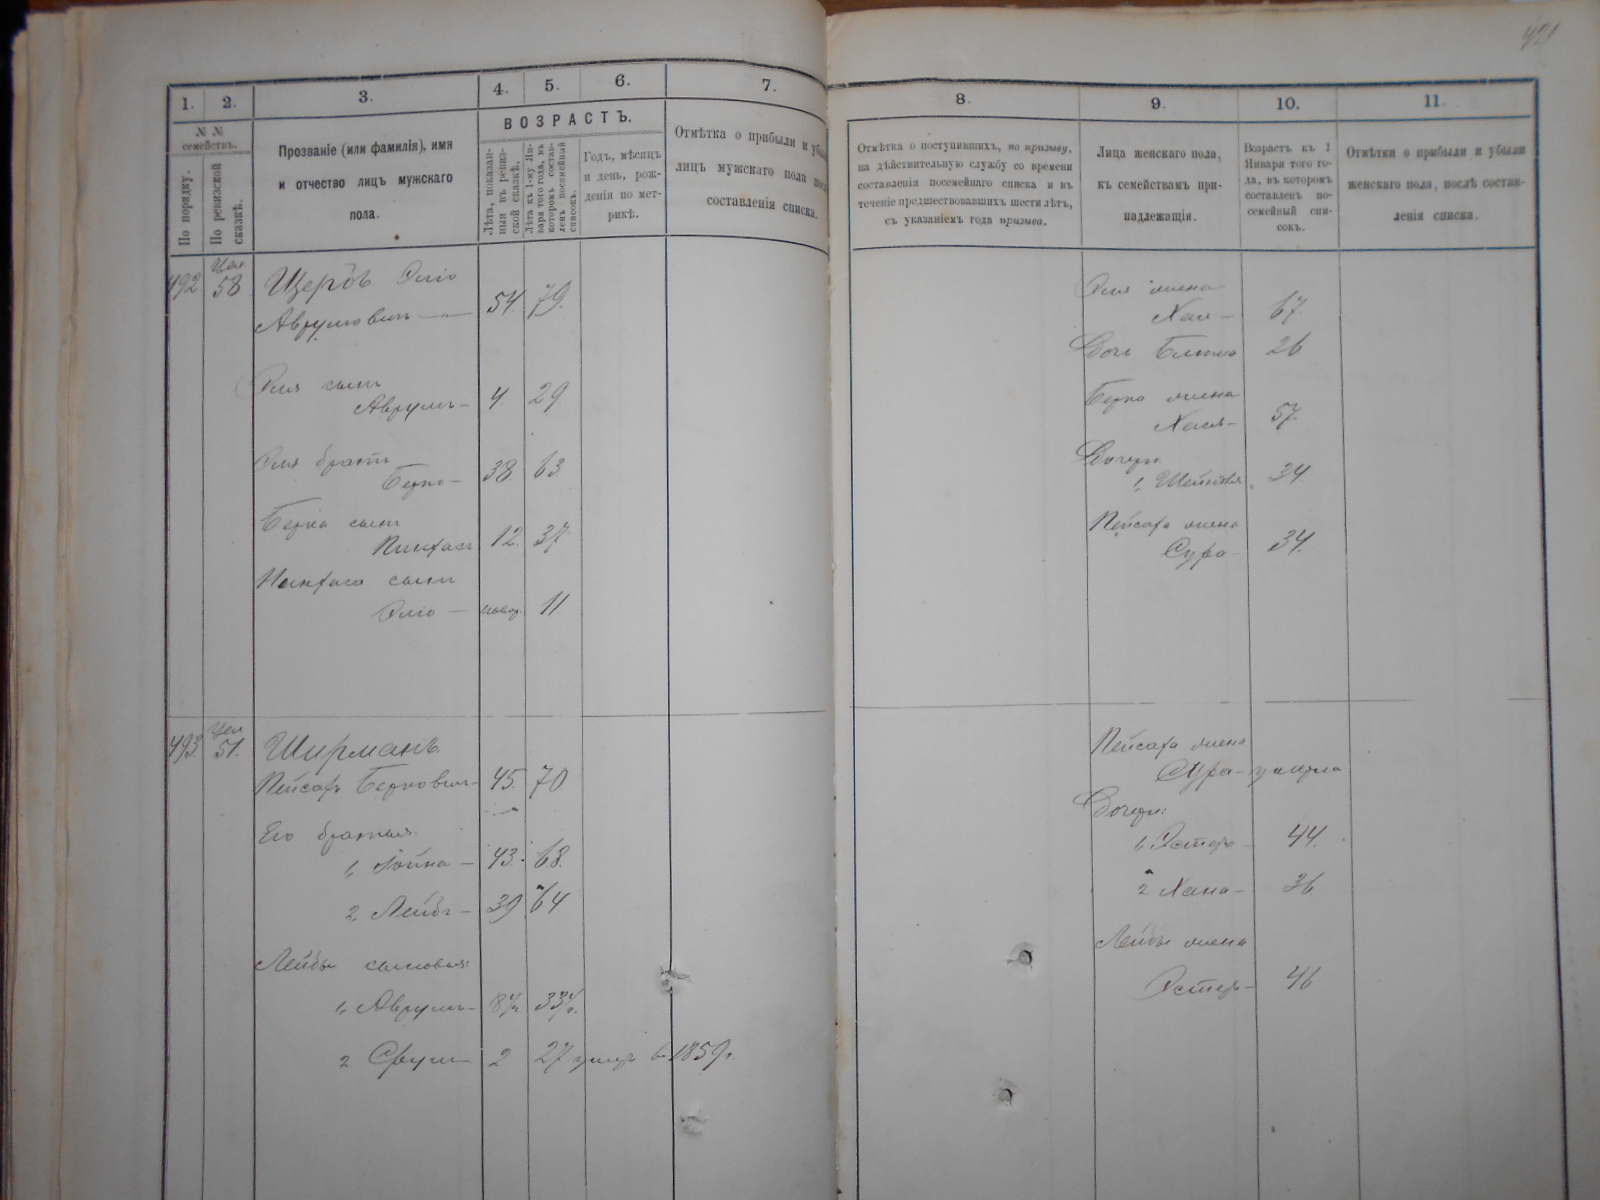 421
1. 2. 3. 4. 5. 6. 7.
№ № семействъ.
По порядку.
По ревизской сказкѣ.
Прозваніе (или фамилія), имя
и отчество лицъ мужскаго
пола.
ВОЗРАСТЪ.
Лѣта, показан-
ныя въ ревиз-
ской сказкѣ.
Лѣта къ 1-му Ян-
варя того года, въ
которомъ состав-
ленъ посемейный
списокъ.
Годъ, мѣсяцъ
и день, рож-
денія по мет-
рикѣ.
Отмѣтка о прибыли и убыли
лицъ мужскаго пола
составленія списка.
492 58 Щербъ Элiо
Аврумовичъ — 54. 79.
Эля сынъ
Аврумъ — 4. 29
Эля братъ
Берко — 38. 63
Берка сынъ
Пинхасъ 12. 37
Пинхаса сынъ
Элiо — новор. 11
493 51. Ширманъ
Пейсахъ Берковичъ — 45. 70
Его братья:
1, Іойна — 43. 68.
2, Лейбъ — 39 64
Лейбы сыновья:
1, Аврумъ — 8½ 33½.
2 Сруль 2 27 умеръ в 1859 г.
8. 9. 10. 11.
Отмѣтка о поступившихъ, по призыву,
на дѣйствительную службу со времени
составленія посемейнаго списка и въ
теченіе предшествовавшихъ шести лѣтъ,
съ указаніемъ года призыва.
Лица женскаго пола,
къ семействамъ при-
надлежащія.
Возрастъ къ 1
Января того го-
да, въ которомъ
составленъ по-
семейный спи-
сокъ.
Отмѣтки о прибыли и убыли
женскаго пола, послѣ состав-
ленія списка.
Эля жена
Хая — 67.
Дочь 26
Берко жена
Хася — 57.
Дочери:
1, 34.
Пейсаха жена
Сура — 34.
Пейсаха жена
Сура — умерла
Дочери:
1, Эстеръ — 44.
2 Хана — 36
Лейбы жена
Эстеръ — 46